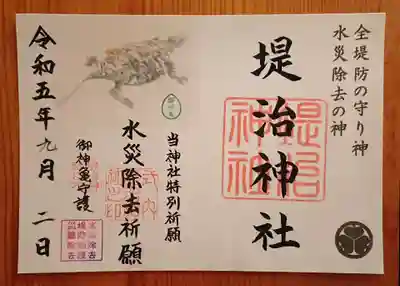 全堤防の守り神
水災除去の神
堤治神社
当神社特別祈願
水災除去祈願
御神亀守護
令和五年九月二日
堤治神社
式内